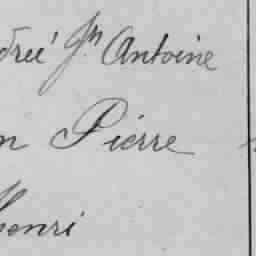 dreé Jn Antoine
n Pierre
Henri